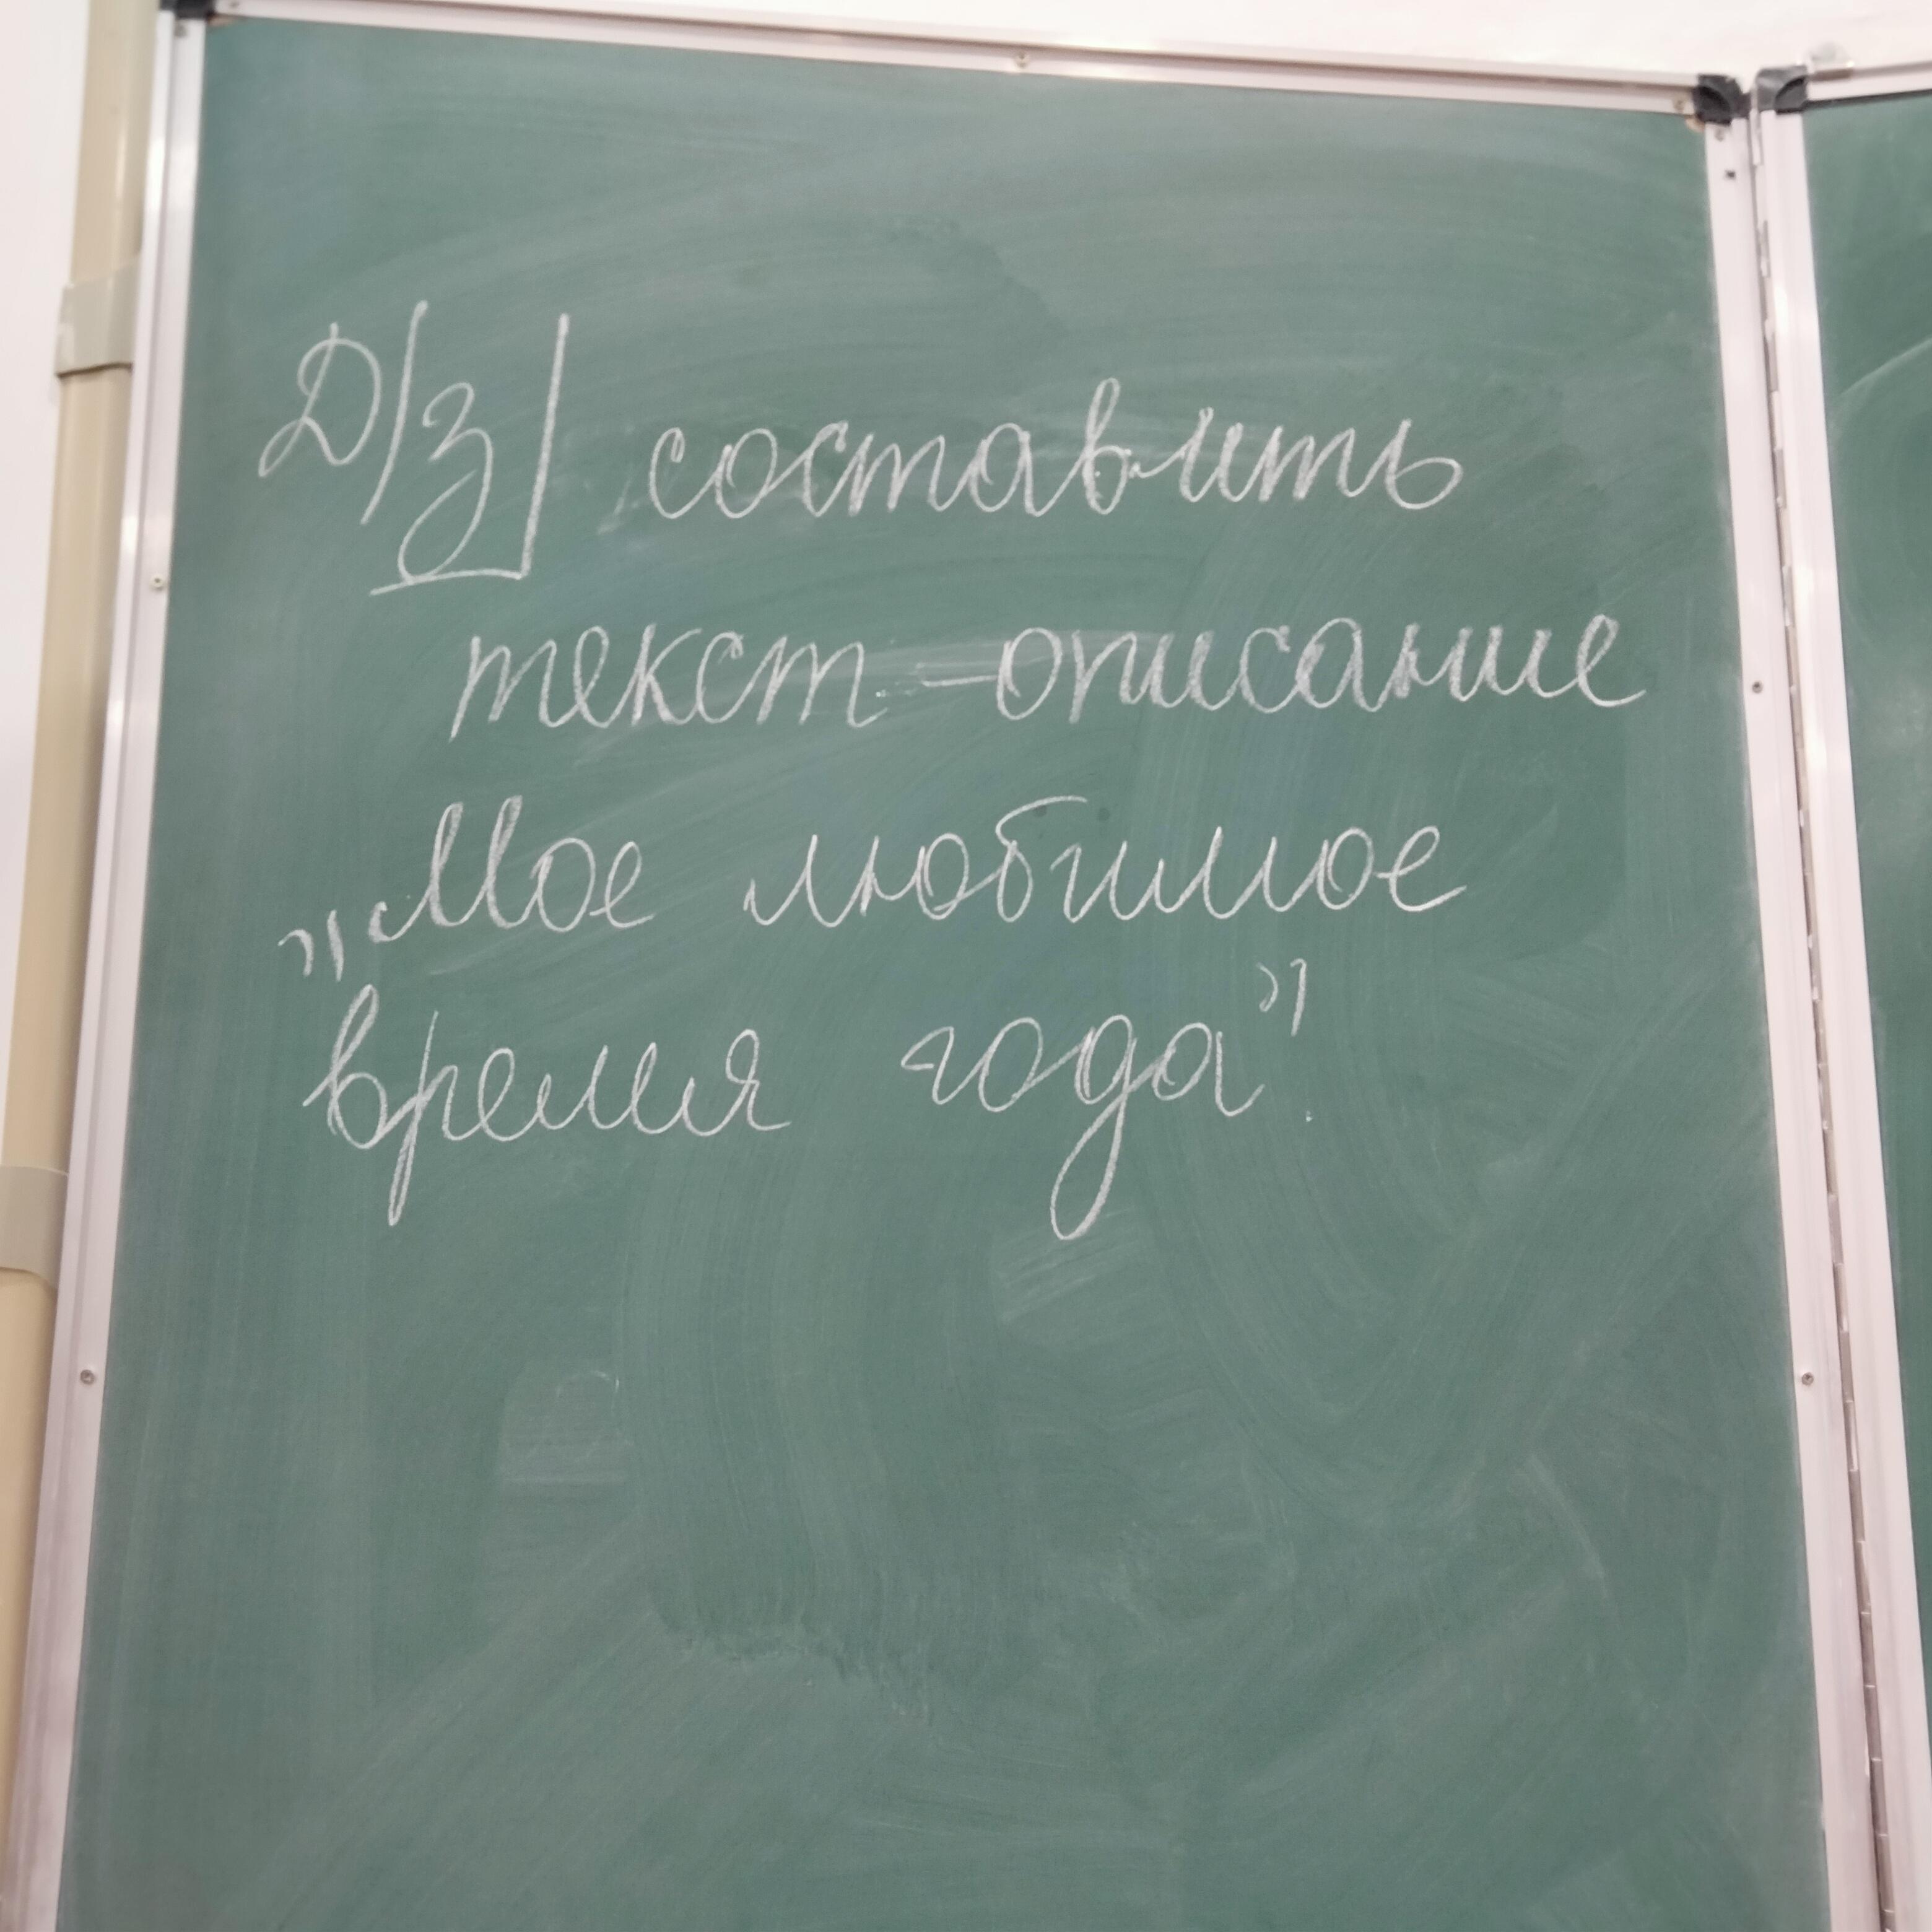 Д/з| составить
текст-описание
„Мое любимое
время года".